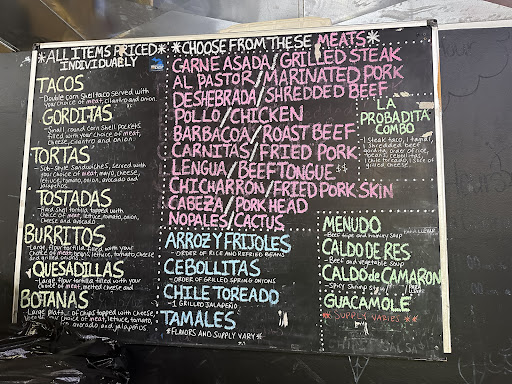 *ALL ITEMS PRICED*
INDIVIDUALLY
TACOS
-Double corn shell taco served with
your choice of meat, cilantro and onion.
GORDITAS
-Small, round corn shell pockets
filled with your choice of meat,
cheese, cilantro and onion.
TORTAS
-Sub-style sandwiches, served with
your choice of meat, mayo, cheese,
lettuce, tomato, onion, avocado and
jalapeños.
TOSTADAS
-Hard shell tortilla topped with
choice of meat, lettuce, tomato, onion,
cheese and avocado.
BURRITOS
-Large, flour tortilla filled with your
choice of meat, beans, lettuce, tomato, cheese
and grilled onions.
QUESADILLAS
-Large, flour tortilla filled with your
choice of meat, melted cheese and
BOTANAS
-Large platter of chips topped with cheese,
choice of meat, lettuce, tomato,
avocado and jalapeños.
*CHOOSE FROM THESE MEATS*
CARNE ASADA/GRILLED STEAK
AL PASTOR/MARINATED PORK
DESHEBRADA/SHREDDED BEEF
POLLO/CHICKEN
BARBACOA/ROAST BEEF
CARNITAS/FRIED PORK
LENGUA/BEEF TONGUE $$
CHICHARRON/FRIED PORK SKIN
CABEZA/PORK HEAD
NOPALES/CACTUS
ARROZ Y FRIJOLES
-ORDER OF RICE AND REFRIED BEANS
CEBOLLITAS
-ORDER OF GRILLED SPRING ONIONS
CHILE TOREADO
-1 GRILLED JALAPEÑO
TAMALES
*FLAVORS AND SUPPLY VARY*
LA
PROBADITA
COMBO
1 steak taco, 1 tamal,
1 shredded beef
gordita, order of rice,
1 chile toreado, 1 slice of
grilled cheese.
MENUDO
-Beef tripe and hominy soup
CALDO DE RES
-Beef and vegetable soup
CALDO de CAMARON
-Spicy shrimp soup
GUACAMOLE
** SUPPLY VARIES **